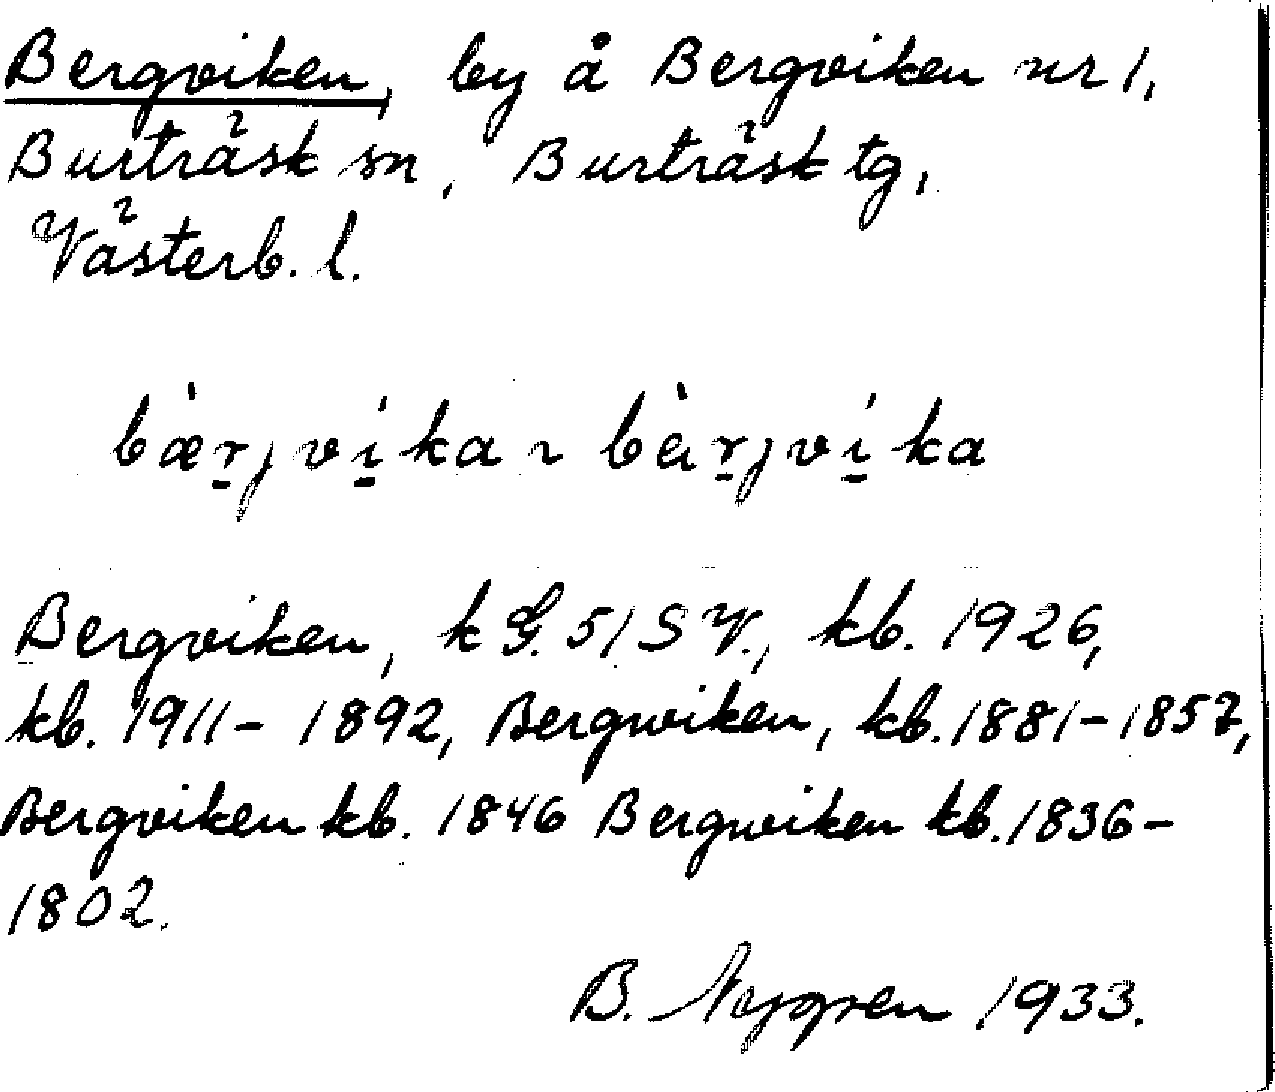 Bergviken, by å Bergviken nr 1,
Burträsk sn, Burträsk tg,
Västerb. l.
bæ̀r̠jví̠ka ~ bàr̠jví̠ka
Bergviken, k G. 51 S V., kb. 1926,
kb. 1911-1892, Bergwiken, kb. 1881-1857,
Bergviken kb. 1846 Bergwiken kb. 1836-
1802.
B. Nygren 1933.